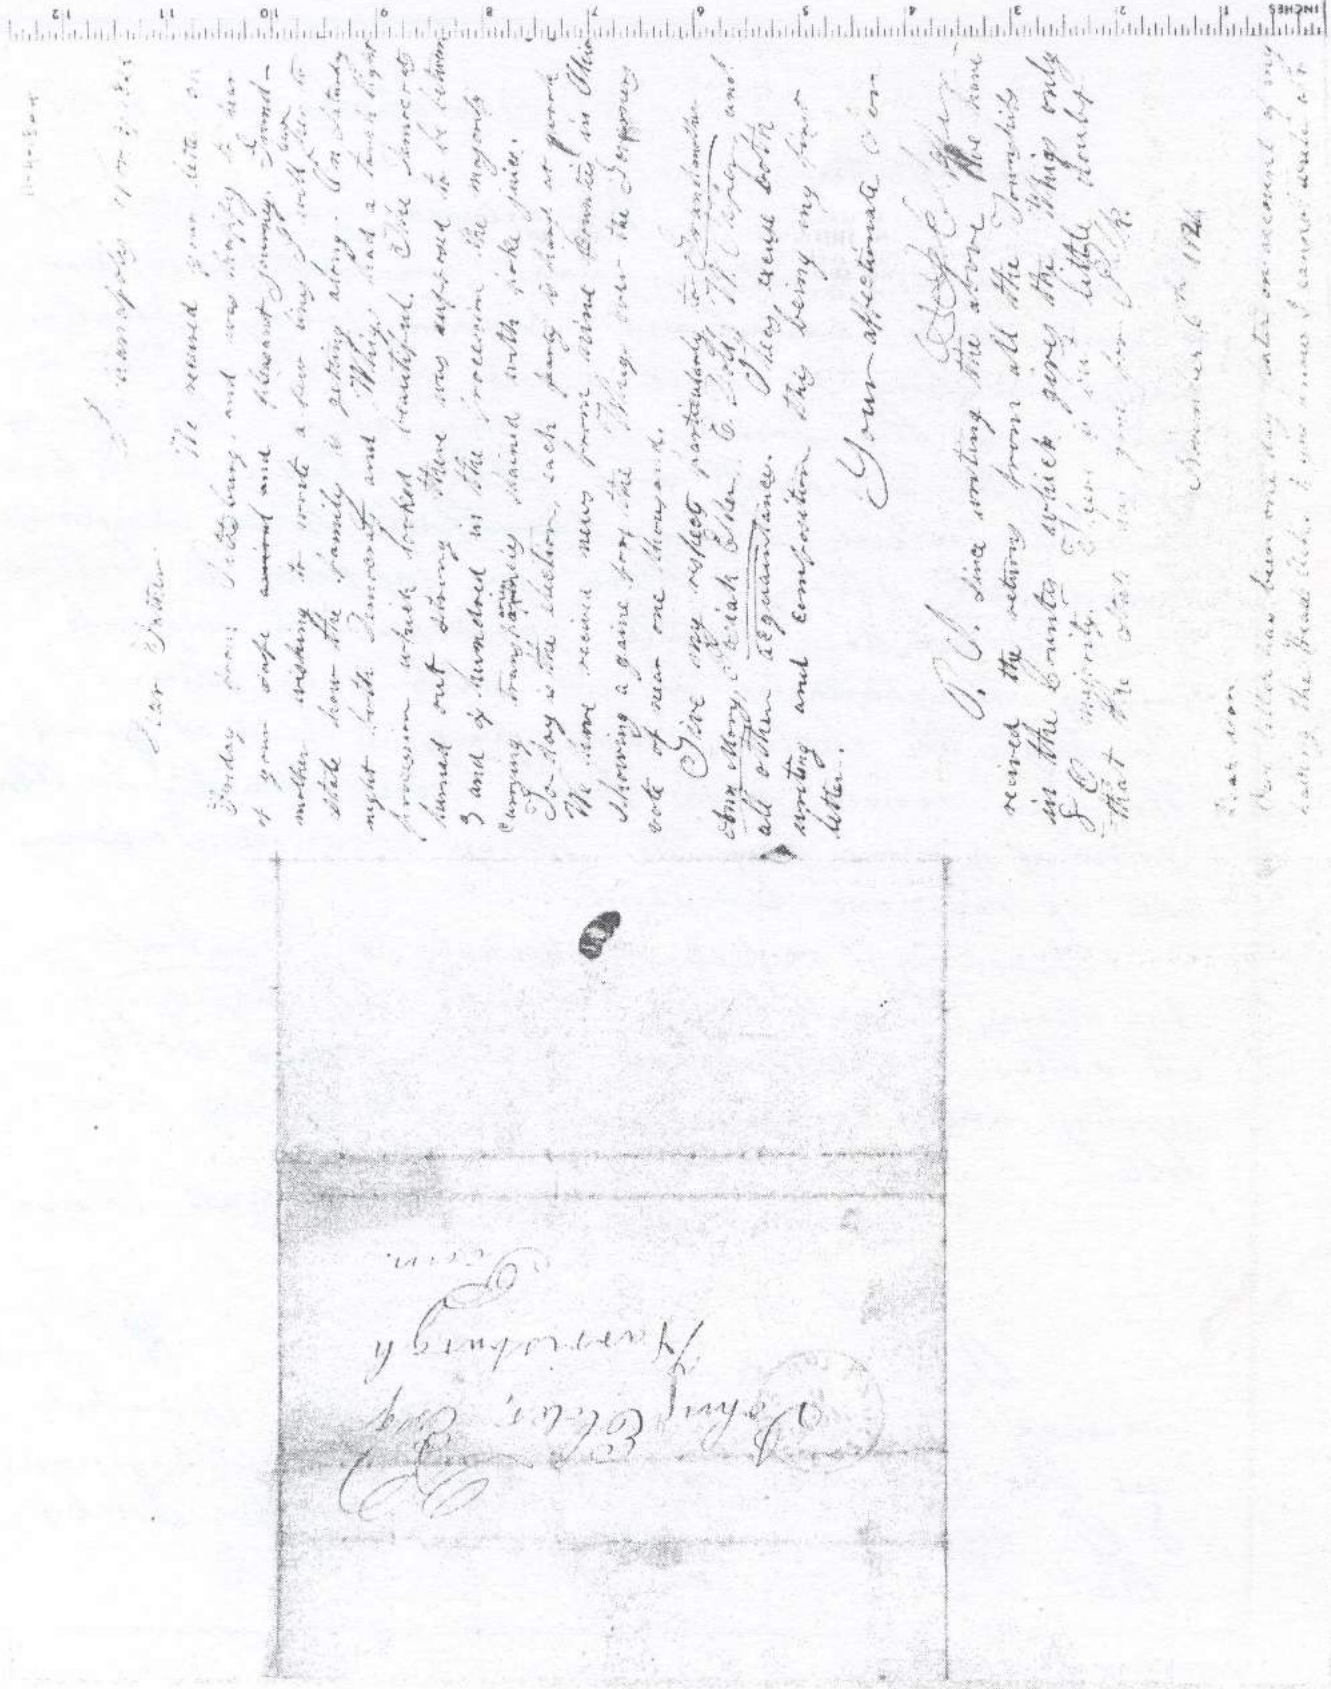 11-4-1844
Indianapolis Nov
Dear Father
We received your letter on
Sunday from Pittsburg, and was happy to hear
of your safe and pleasant journey. Grand-
mother wishing to write a few lines, I will
state how the family is getting along. On Saturday
night both Democrats and Whigs had a torch light
procession which looked beautiful. The Democrats
turned out strong there was supposed to be between
5 and 6 hundred in the procession the majority
carrying transparencies stained with poke juice.
To-day is the election, each party is hard at work
We have received news from nine Counties in Ohio
showing a gaine for the Whigs over the Governors
vote of near one thousand.
Give my respects particularly to Grandmother
Ann Mary, Uriah Elder, and
all other acquaintances. Please excuse both
writing and composition this being my first
letter.
Your affectionate Son
P.S. Since writing the above We have
received the returns from all the Townships
in the County which gives the Whigs only
80 majority. There is but little doubt
that the State has gone for Polk.
November 6th 1844
Dear son
Our letter has been one day later on account of my
having the Head Ache & you know I cannot write at
John Elder, Esq
Harrisburgh
Penn.
INCHES 1 2 3 4 5 6 7 8 9 10 11 12